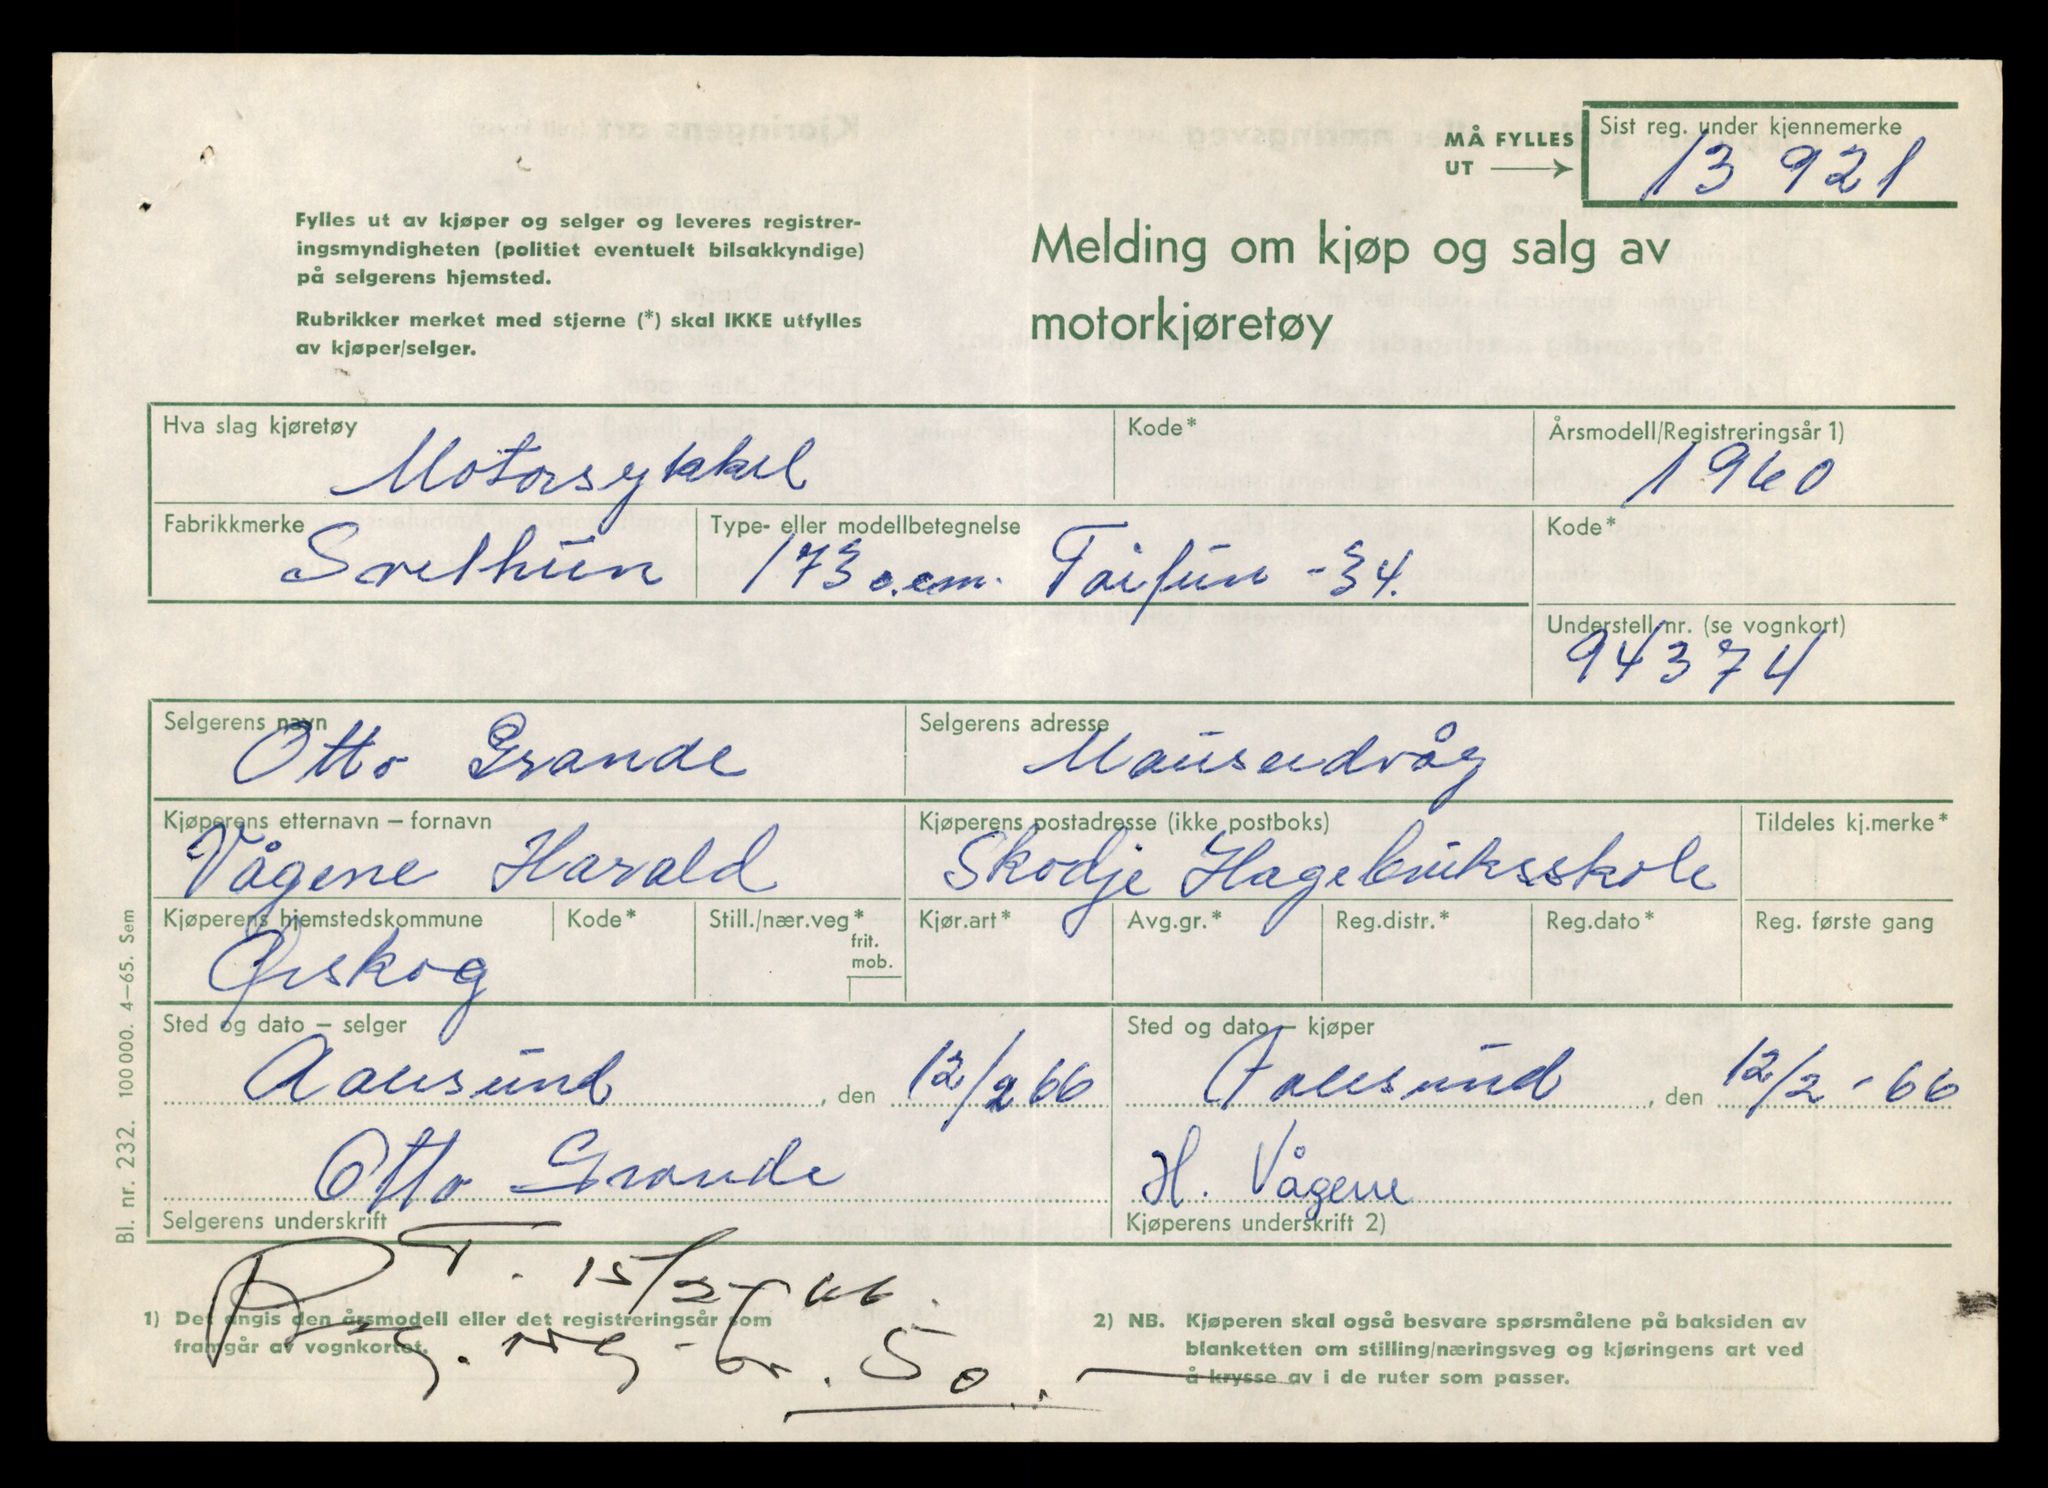 MÅ FYLLES UT
Sist reg. under kjennemerke
13 921
Fylles ut av kjøper og selger og leveres registrer-
ingsmyndigheten (politiet eventuelt bilsakkyndige)
på selgerens hjemsted.
Rubrikker merket med stjerne (*) skal IKKE utfylles
av kjøper/selger.
Melding om kjøp og salg av
motorkjøretøy
Hva slag kjøretøy
Motorsykkel
Kode*
Årsmodell/Registreringsår 1)
1960
Fabrikkmerke
Svithun
Type- eller modellbetegnelse
173 c.cm. Taifun -34.
Kode*
Understell nr. (se vognkort)
94374
Selgerens navn
Otto Grande
Selgerens adresse
Mausendvåg
Kjøperens etternavn – fornavn
Vågene Harald
Kjøperens postadresse (ikke postboks)
Skodje Hagebruksskole
Tildeles kj.merke*
Kjøperens hjemstedskommune
Ørskog
Kode*
Still./nær.veg*
frit.
mob.
Kjør.art*
Avg.gr.*
Reg.distr.*
Reg.dato*
Reg. første gang
Sted og dato – selger
Aalesund, den 12/2 66
Sted og dato – kjøper
Aalesund, den 12/2 - 66
Otto Grande
Selgerens underskrift
H. Vågene
Kjøperens underskrift 2)
T. 15/2-66.
1) Det angis den årsmodell eller det registreringsår som
framgår av vognkortet.
kr. 50.-
2) NB. Kjøperen skal også besvare spørsmålene på baksiden av
blanketten om stilling/næringsveg og kjøringens art ved
å krysse av i de ruter som passer.
Bl. nr. 232. 100 000. 4–65. Sem